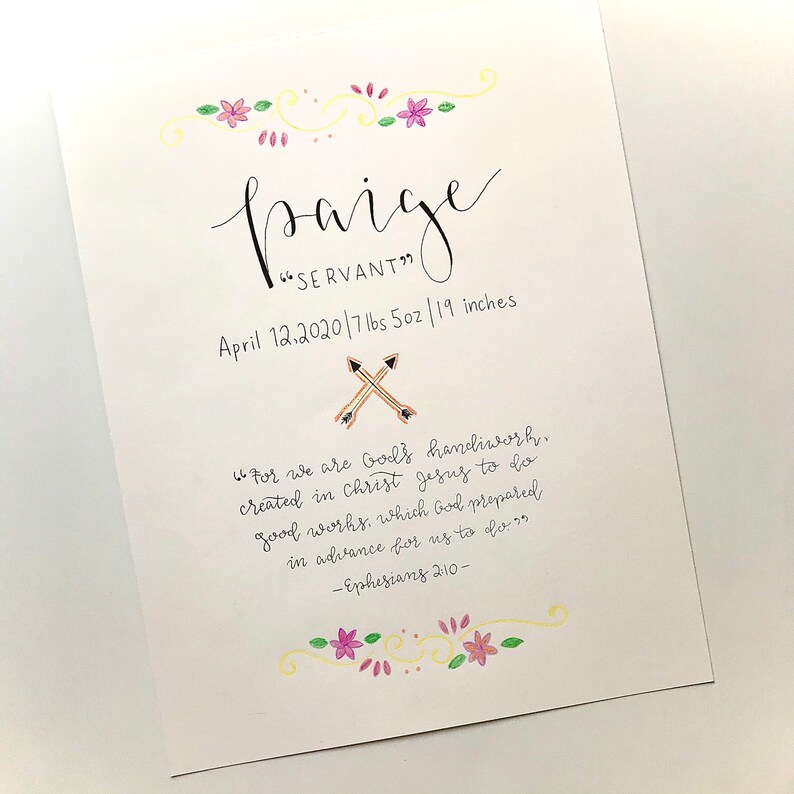 Paige
"SERVANT"
April 12, 2020 | 7 lbs 5oz | 19 inches
"For we are God's handiwork,
created in Christ Jesus to do
good works, which God prepared
in advance for us to do"
- Ephesians 2:10 -